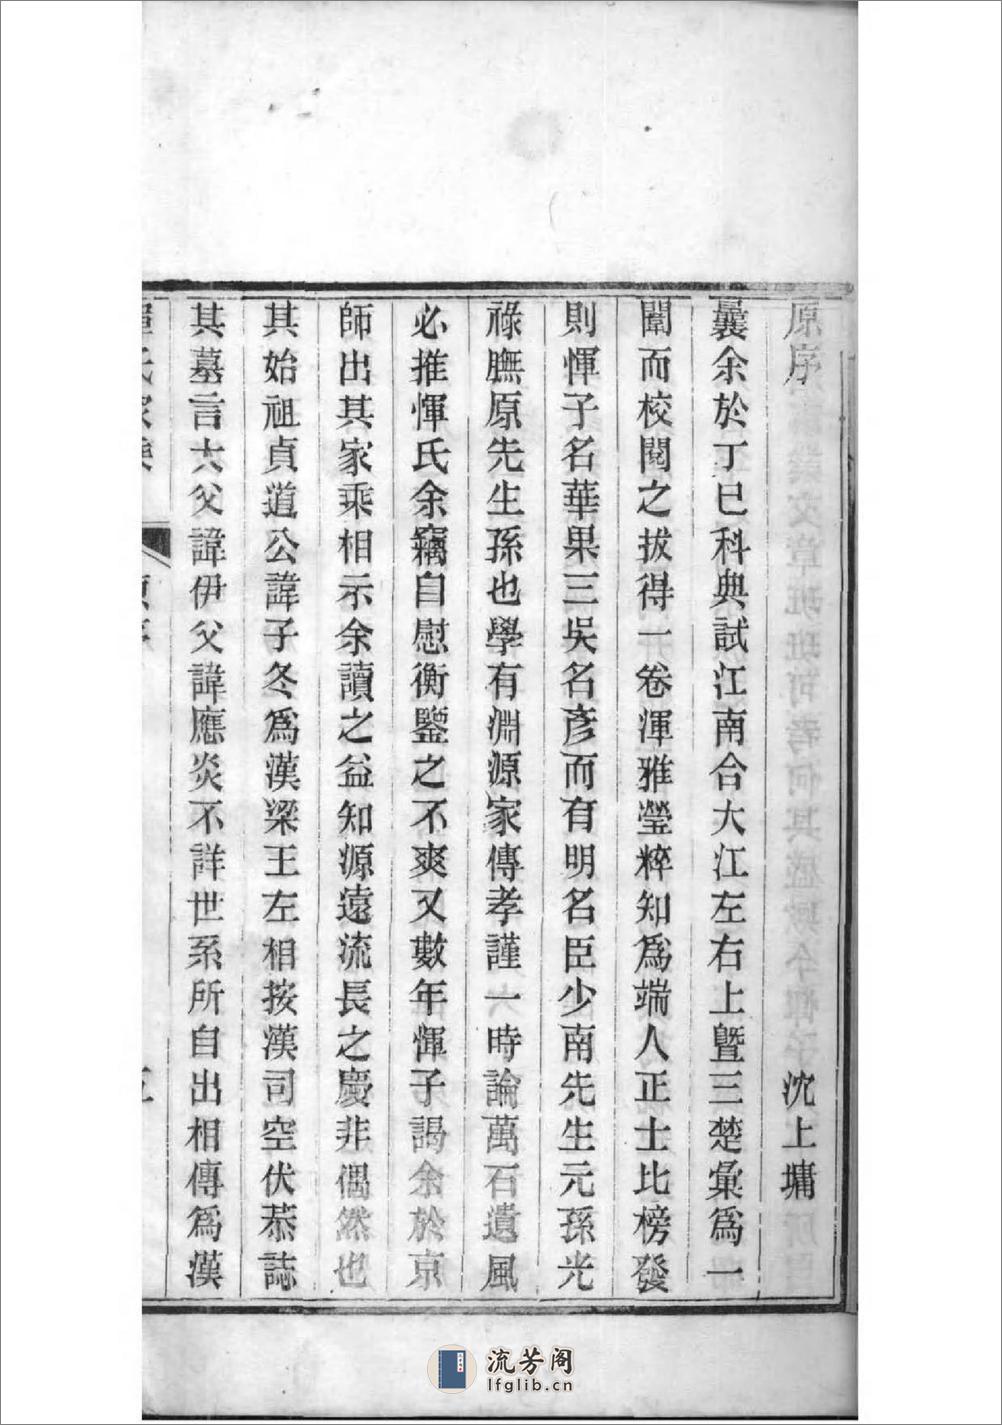 原序
沈上墉
曩余於丁巳科典試江南合大江左右上曁三楚彙爲一
闈而校閱之拔得一卷渾雅瑩粹知爲端人正士比榜發
則惲子名華果三吳名彥而有明名臣少南先生元孫光
祿膴原先生孫也學有淵源家傳孝謹一時論萬石遺風
必推惲氏余竊自慰衡鑒之不爽又數年惲子謁余於京
師出其家乘相示余讀之益知源遠流長之慶非偶然也
其始祖貞道公諱子冬爲漢梁王左相按漢司空伏恭誌
其墓言大父諱伊父諱應炎不詳世系所自出相傳爲漢
流芳阁
lfglib.cn